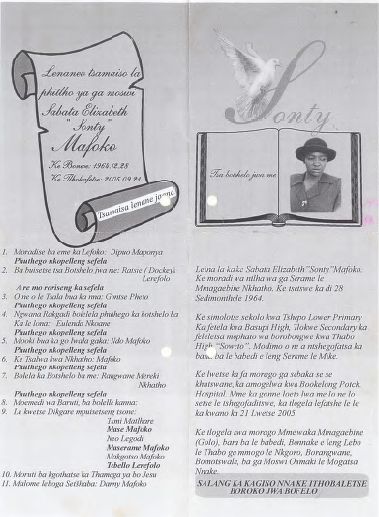 Lenaneo tsameiso la
phitlho ya ga noswi
Sabata Elizabeth
"Sonty"
Mafoko
Ke Bonwe: 1964.12.28
Tsamaisa lenane
1. Moradise ba eme ka Lefoko: Dipuo Maponya
Puuthego skopelleng sefela
2. Ba buisetse tsa Botshelo jwa ne: Ratsie ( Dockey)
Lerefolo
Are mo roriseng ka sefela
3. One o le Tsala bua ka nna: Gontse Pheto
Puuthego skopelleng sefela
4. Ngwana Rakgadi boelela phuthego ka botshelo ba
Ka le lona: Eulenda Nkoane
Puuthego skopelleng sefela
5. Mooki bua ka go lwala gaka: Sido Mafoko
Puuthego skopelleng sefela
6. Ke Tsalwa lwa Nkhatho: Mafoko
Puuthego skopelleng sefela
7. Bolela ka Botshelo ba me: Rangwane Mereki
Nkhatho
Puuthego skopelleng sefela
8. Moemedi wa Baruti, ba bolelli kanna:
9. La kwetse Dikgare mpuisetseng tsone:
Tani Matlhare
Nase Mafoko
Neo Legodi
Naserame Mafoko
Nakgotso Mafoko
Tebello Lerefolo
10. Moruti ba kgothatse ka Thamega ya bo Jesu
11. Malome leboga Setshaba: Damy Mafoko
Sonty
Tsa botshelo jwa me
Leina la kake Sabata Elizabeth "Sonty" Mafoko.
Ke moradi wa ntlhawa ga Serame le
Mnagaebine Nkhatho. Ke tsetswe ka di 28
Sedimonthole 1964.
Ke simolotse sekolo kwa Tshupo Lower Primary
Ka fetela kwa Basupi High, Tlokwe Secondary ka
feleletsa mophato wa borobongwe kwa Thabo
High "Soweto". Modimo o re a ntshegofatsa ka
bana ba le babedi e leng Serame le Mike.
Ke lwetse ka fa morego ga sebaka se se
khutswane, ka amogelwa kwa Bookelong Potch
Hospital. Mme ka gonne loeto lwa me lo ne lo
setse le tshegofaditswe, ka tlogela lefatshe le le
ka kwano ka 21 Lwetse 2005
Ke tlogela awa morego Mmewaka Mnagaebine
(Golo), bars ba le babedi, Bonnake e leng Lebo
le Thabo ge mmogo le Nkgoro, Borangwane,
Bomotswalt, ba ga Moswi Osmaki le Mogatsa
Nnake.
SALANG KA KAGISO NNAKE ITHOBALETSE
BOROKO JWA BOFELO